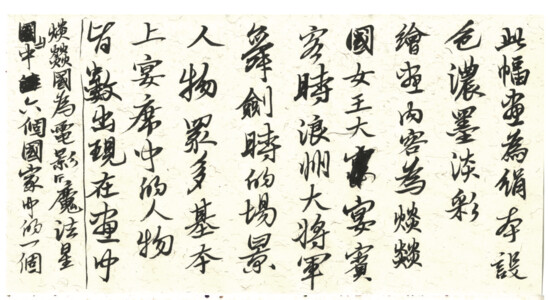 此幅画為絹本設
色濃墨淡彩
繪画内容為燚
國女王大宴賓
客時浪州大将軍
舞劍時的場景
人物眾多基本
上宴席中的人物
皆數出現在画中
燚國為電影『魔法星
國』中六個國家中的一個